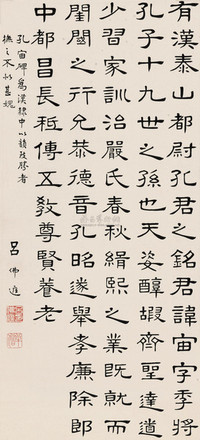 有漢泰山都尉孔君之銘君諱宙字季將
孔子十九世之孫也天姿醇嘏齊聖達道
少習家訓治嚴氏春秋緝熙之業既就而
閨閫之行允恭德音孔昭遂舉孝廉除郎
中都昌長祗傳五教尊賢養老
孔宙碑為漢隸中以韻致勝者
撫之不似甚媿
呂佛庭